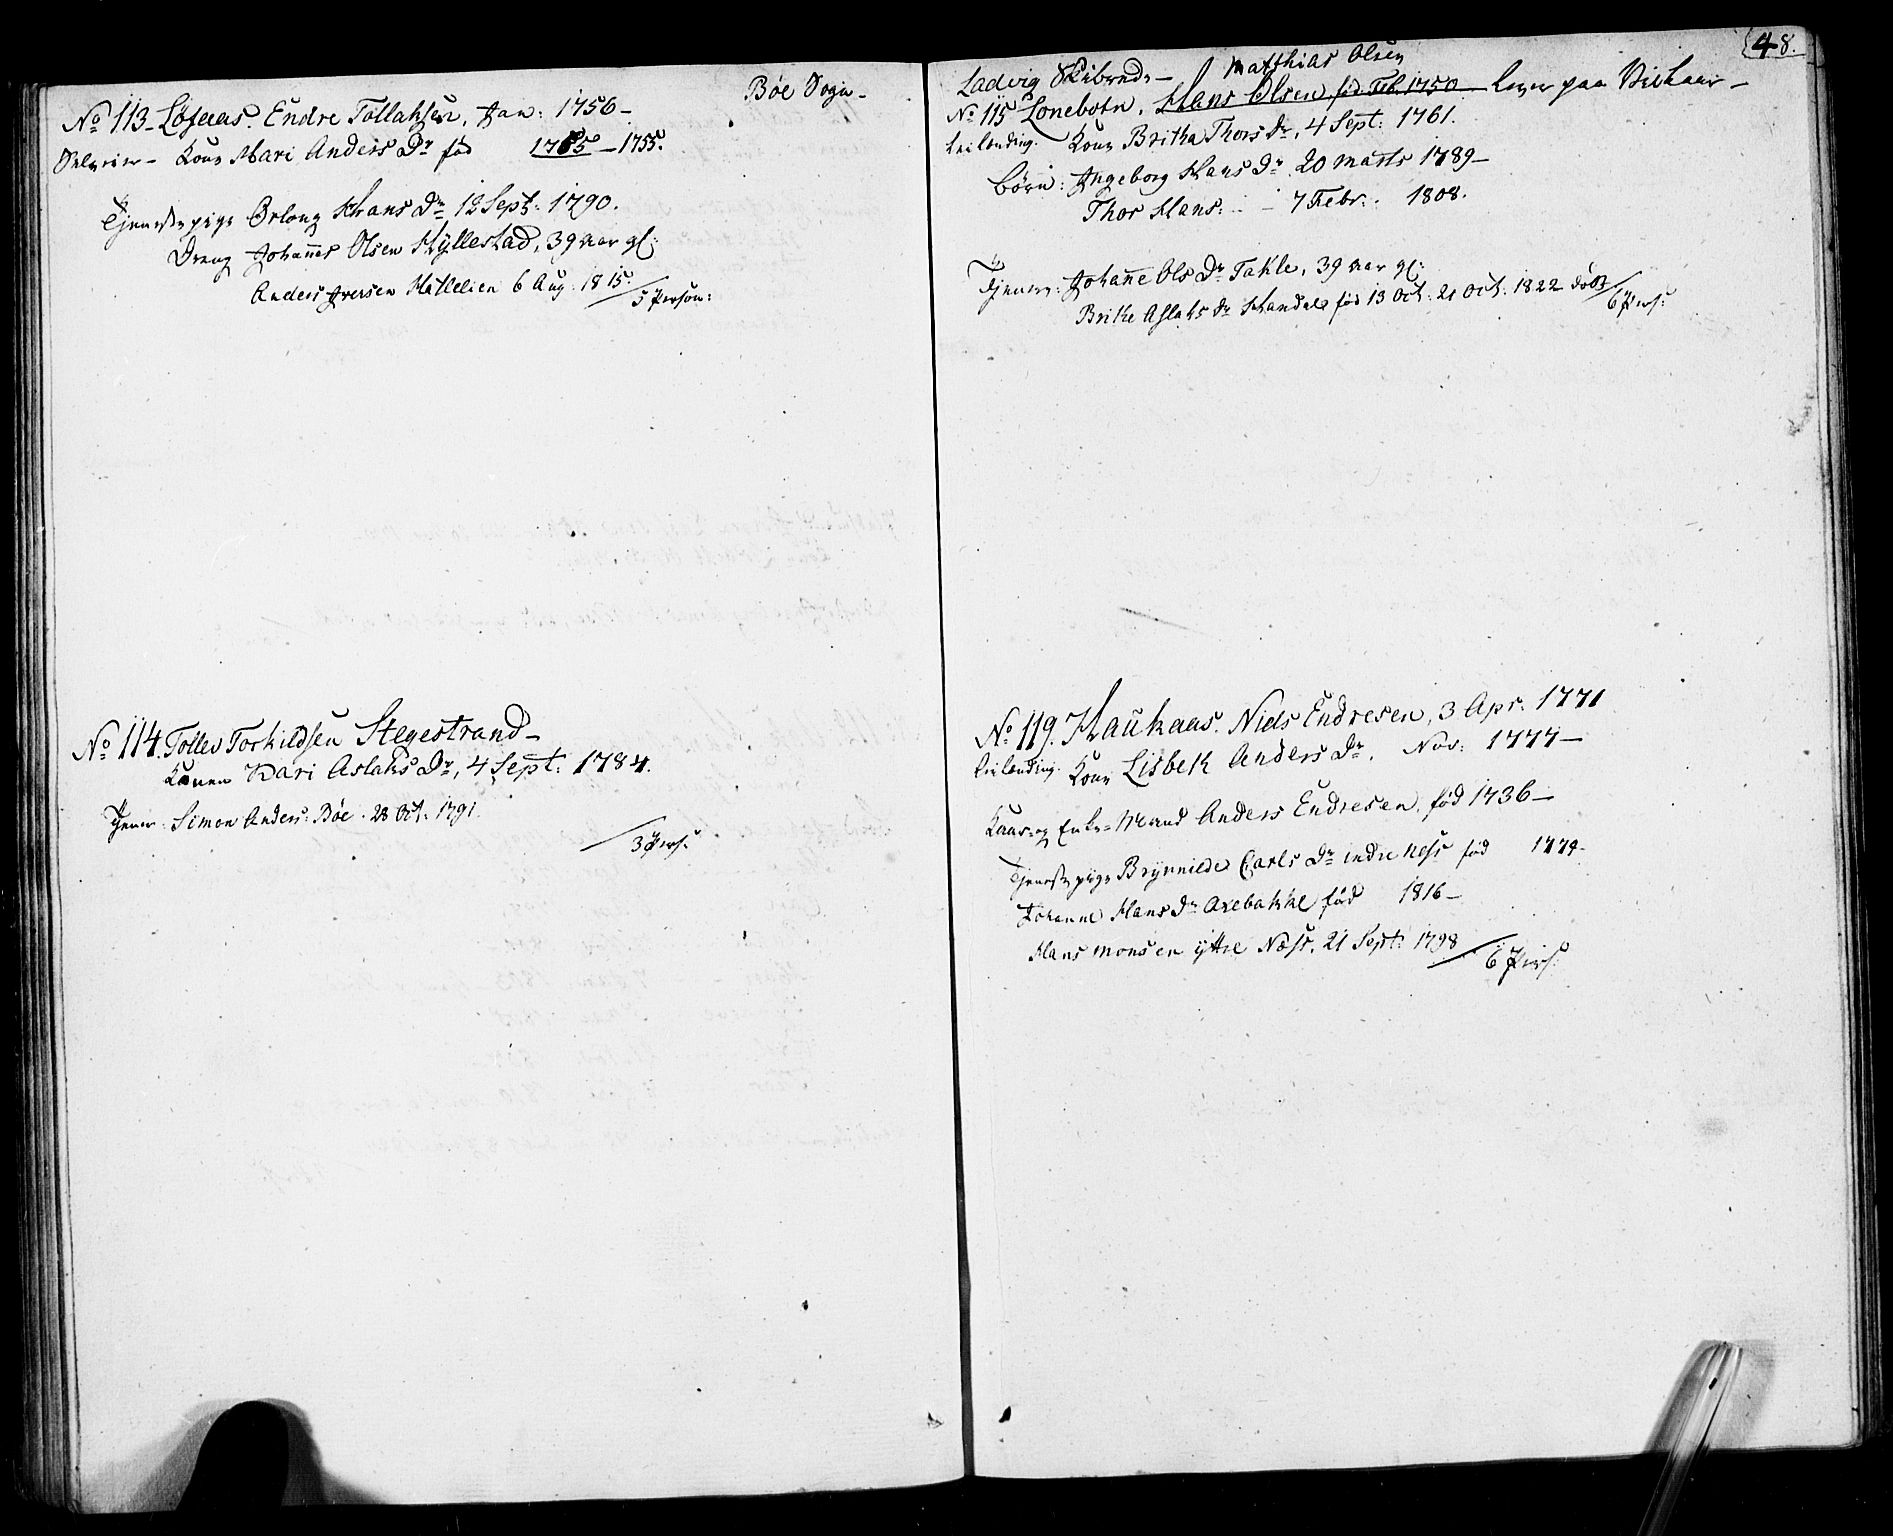 Bøe Sogn -
No 113 - Løfaas. Endre Tollaksen, Jan: 1756 -
Selveier - Kone Mari Anders Dr fød 1785 - 1755.
Tjenestepige Orlong Hans Dr 12 Sept: 1790.
Dreng Johannes Olsen Hyllestad, 39 aar gl:
Anders Iversen Hatlelien 6 Aug: 1815.
5 Person:
No 114. Tollev Torkildsen Stegestrand -
Konen Kari Aslaks Dr, 4 Sept: 1784.
Tjener: Simon Anders: Bøe. 28 Oct: 1791.
3 Pers:
48.
Ladvig Skibrede -
Matthias Olsen
No 115 Lonebotn. Hans Olsen, fød Feb. 1750 lever paa Vilkaar -
Leilænding. Kone Britha Thors Dr, 4 Sept: 1761.
Børn: Ingeborg Hans Dr 20 Marts 1789 -
Thor Hans: - 7 Febr: 1808.
Tjener: Johanne Ols Dr Takle, 39 aar gl:
Brite Aslaks Dr fød 13 Oct: 21 Oct: 1822 døbt
6 Pers:
No 119. Haukaas. Niels Endresen, 3 Apr: 1771
Leilænding. Kone Lisbeth Anders Dr. Nov: 1777 -
Kaar og Enke-Mand Anders Endresen, fød 1736 -
Tjenestepige Brynnilde Carls Dr indre Ness fød 1774 -
Johanne Hans Dr Axebakke fød 1816 -
Hans Monsen yttre Næss, 21 Sept: 1798
6 Pers: